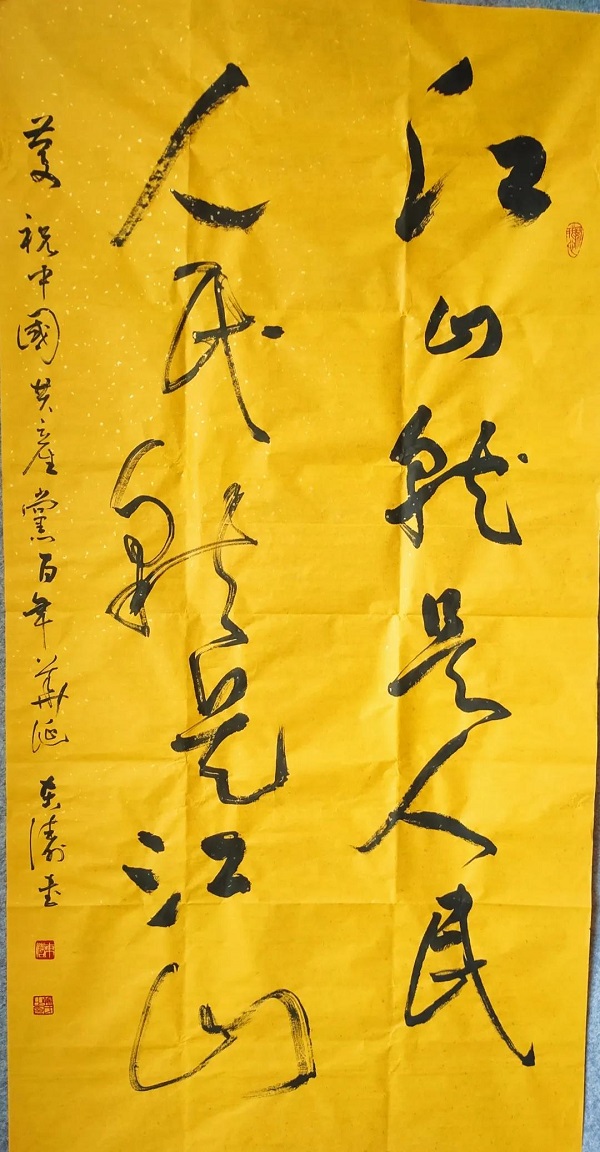 江山就是人民
人民就是江山
慶祝中國共產黨百年華誕 東濤書